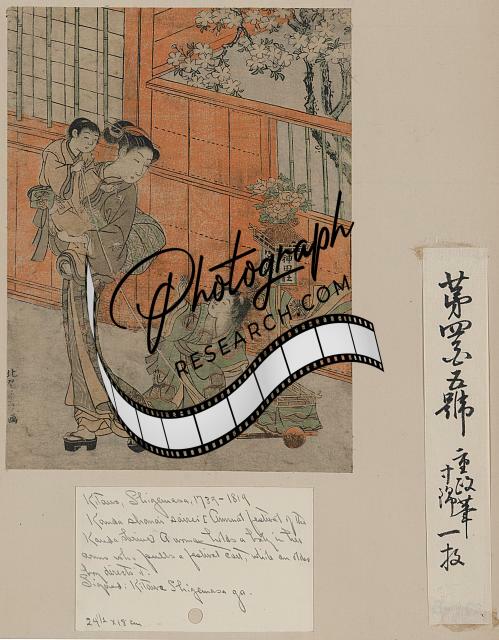 北尾重政画
神田社
Photograph
RESEARCH.COM
第四百五號
重政筆
一枚
Kitao, Shigemasa, 1739-1819
Kanda shonai sairei [Annual festival of the
Kanda Shrine] A woman holds a baby in her
arms who pulls a festival cart, while an older
boy directs it.
Signed: Kitao Shigemasa ga.
24 1/2 x 18 cm